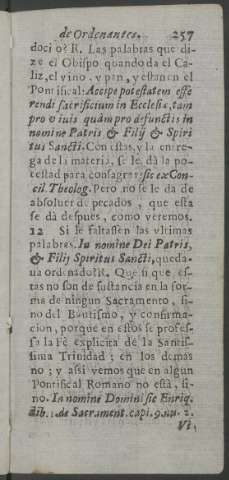 de Ordenantes. 257
doci o? R. Las palabras que di-
ze el Obispo quando da el Ca-
liz, el vino, y pan, y estan en el
Pontifical: Accipe potestatem offe
rendi sacrificium in Ecclesia, tam
pro vivis quam pro defunctis in
nomine Patris, & Filij & Spiri
tus Sancti. Con estas, y la entre-
ga de la materia, se le dà la po-
testad para consagrar: sic ex Con-
cil. Theolog. Pero no se le da de
absolver de pecados, que esta
se dà despues, como veremos.
12 Si se faltassen las vltimas
palabras. In nomine Dei Patris,
& Filij Spiritus Sancti, queda-
ua ordenado? R. Que si que es-
tas no son de sustancia en la for-
ma de ningun Sacramento, si-
no del Bautismo, y confirma-
cion, porque en estos se profes-
sa la Fè explicita de la Santis-
sima Trinidad; en los demàs
no; y assi vemos que en algun
Pontifical Romano no està, si-
no. In nomine Domini sic Enriq.
lib. de Sacrament. capi. 9. nu. 2.
Vt,